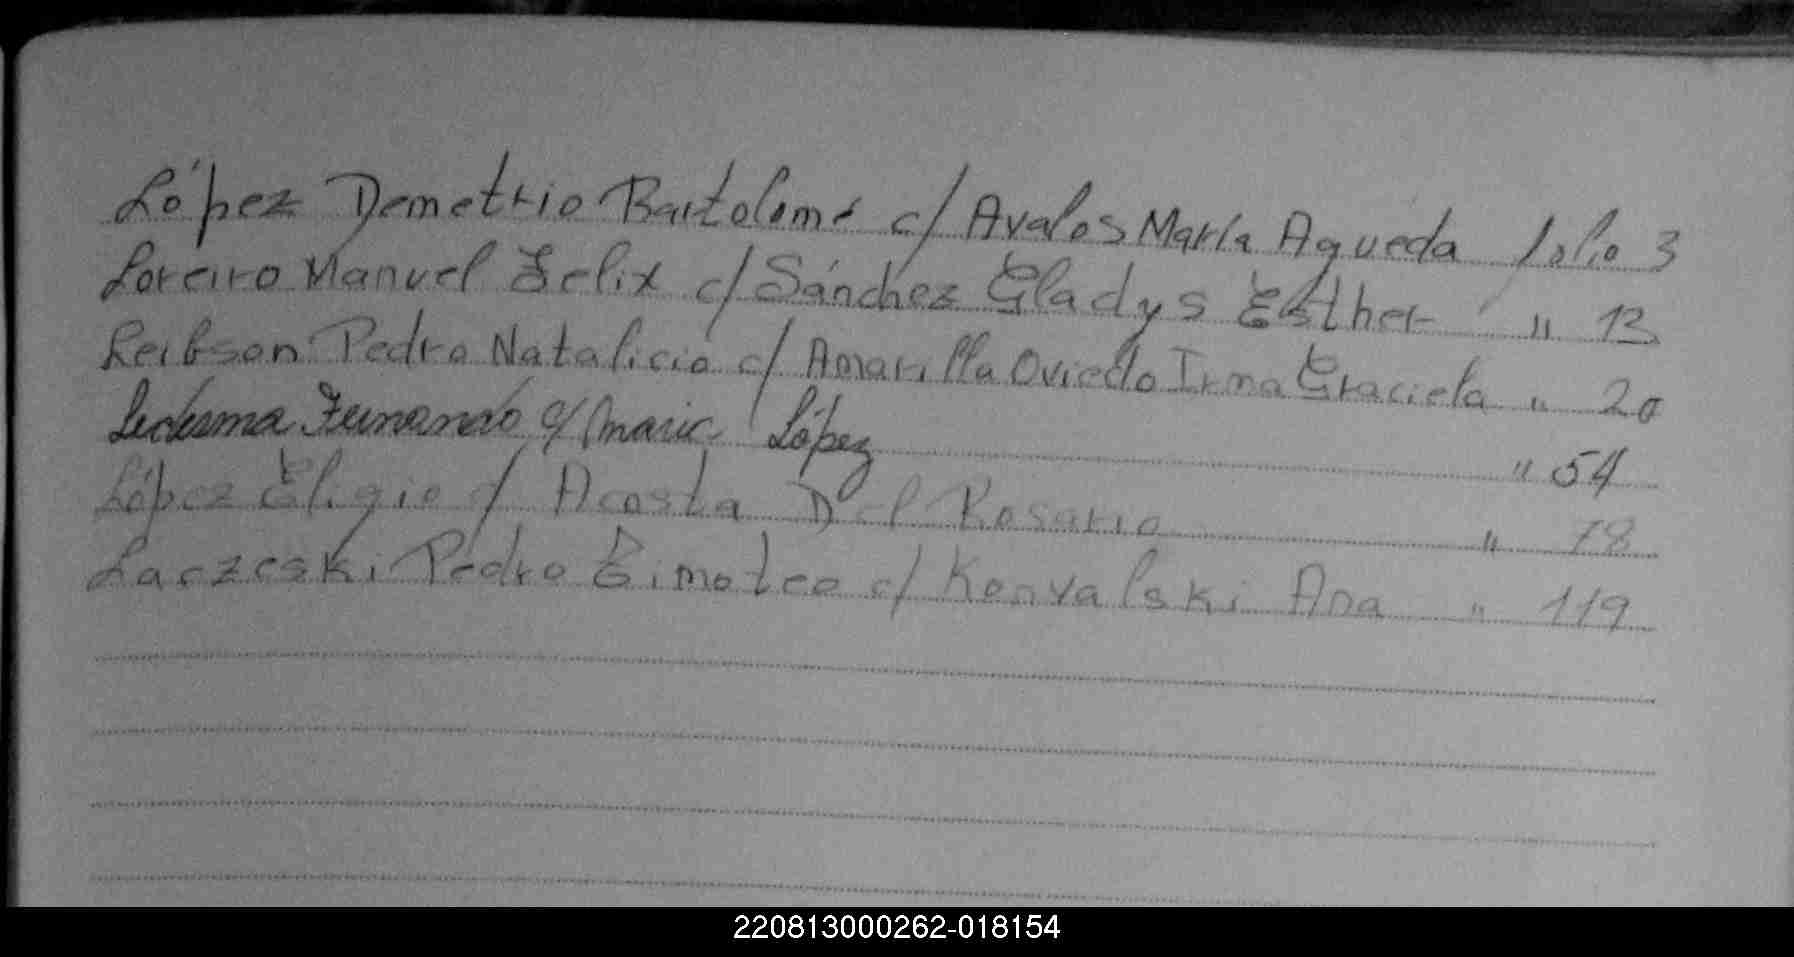 López Demetrio Bartolomé c/ Avalos María Agueda folio 3
Loreiro Manuel Felix c/ Sánchez Gladys Esther " 13
Leibson Pedro Natalicio c/ Amarilla Oviedo Irma Graciela " 20
Ledesma Fernando c/ Maria López " 54
López Eligio c/ Acosta Del Rosario " 78
Laczeski Pedro Timoteo c/ Konvalski Ana " 119
220813000262-018154